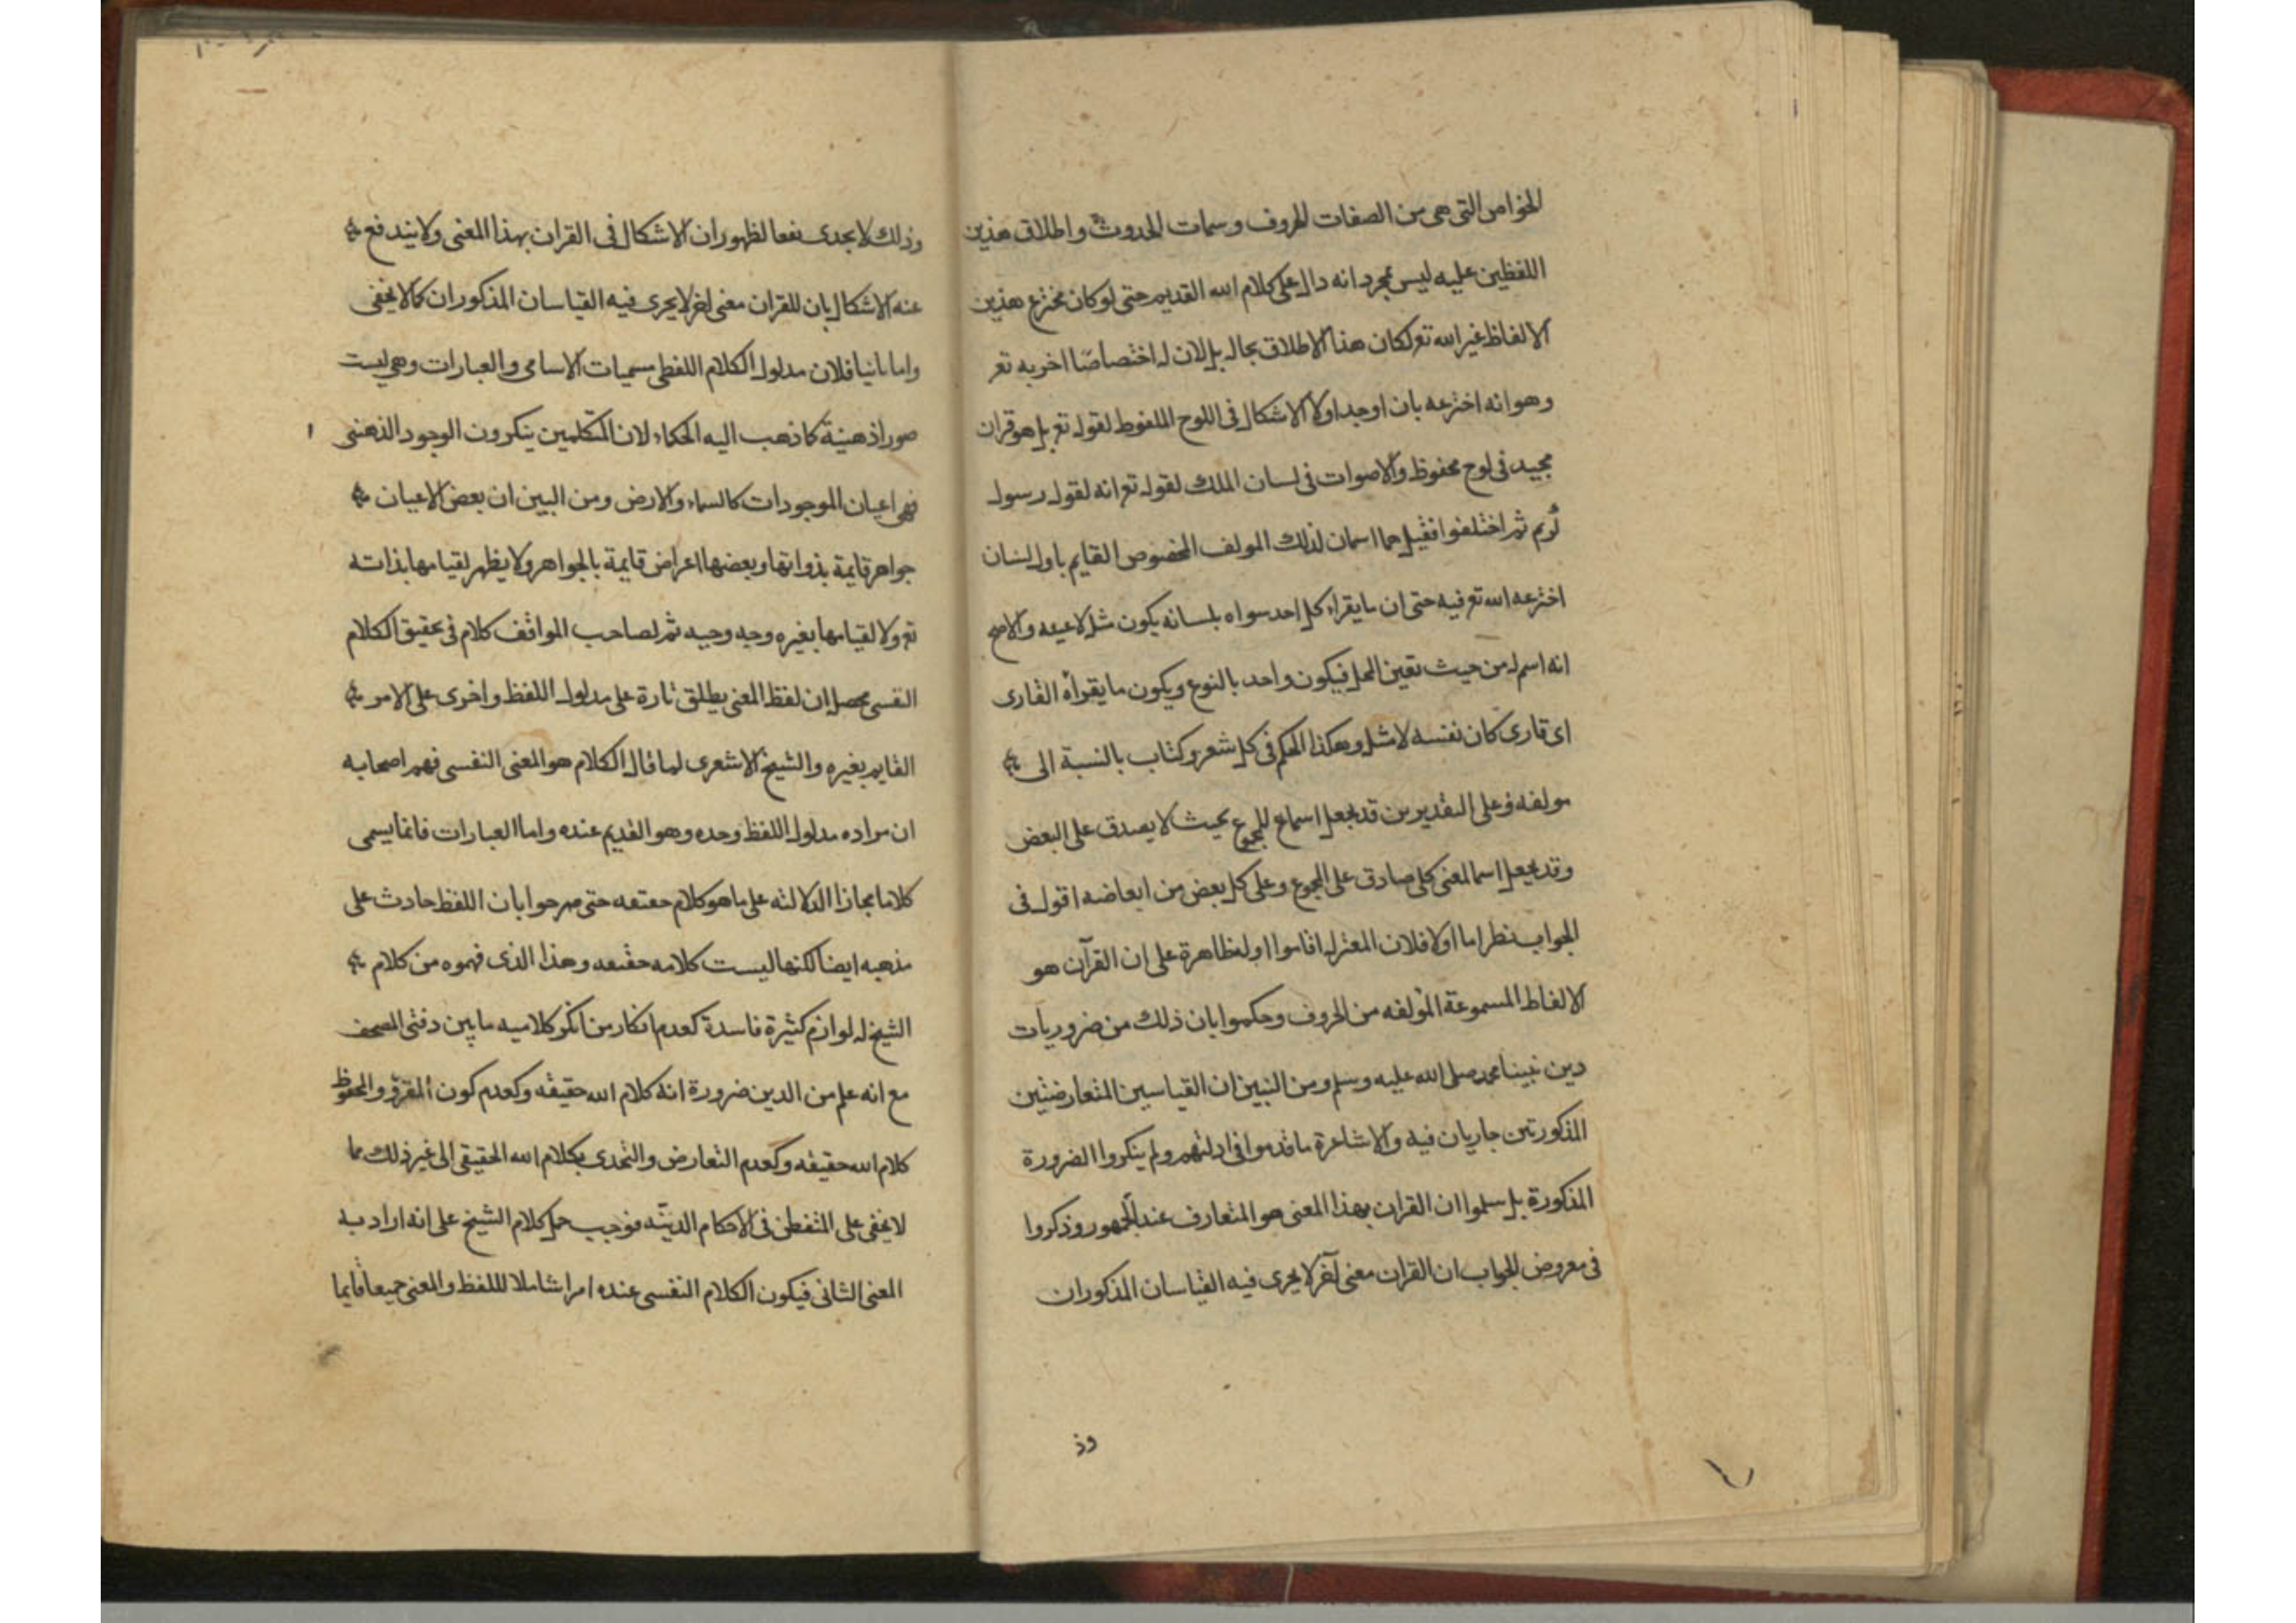 الخواص التى هى من الصفات الحروف وسمات الحدوث واطلاق هذين
اللفظين عليه ليس بمجرد انه دال على كلام الله القديم حتى لو كان مخترع هذين
الالفاظ غير الله تع لكان هذا الاطلاق بحاله بل لان له اختصاصا اخر به تع
وهو انه اخترعه بان اوجد اولا الاشكال فى اللوح الملفوظ لقوله تع بل هو قران
مجيد فى لوح محفوظ والاصوات فى لسان الملك لقوله تع انه لقول رسول
كريم ثم اختلفوا فقيل هما اسمان لذلك المولف المخصوص القايم باول لسان
اخترعه الله تع فيه حتى ان ما يقراء كل احد سواه بلسانه يكون مثله لا عينه والاصح
انه اسم له من حيث تعين المحل فيكون واحد بالنوع ويكون ما يقرأه القارى
اى قارى كان نفسه لا مثله وهكذا الحكم فى كل شعر وكتاب بالنسبة الى
مولفه وعلى التقديرين قد يجعل اسما للمجموع بحيث لا يصدق على البعض
وقد يجعل اسما لمعنى كلى صادق على المجموع وعلى كل بعض من ابعاضه اقول فى
الجواب نظر اما اولا فلان المعتزله اقاموا ادلة ظاهرة على ان القرآن هو
الالفاظ المسموعة المؤلفه من الحروف وحكموا بان ذلك من ضروريات
دين نبينا محمد صلى الله عليه وسلم ومن البين ان القياسين المتعارضتين
المذكورتين جاريان فيه والاشاعرة ما قدموا فى ادلتهم ولم ينكروا الضرورة
المذكورة بل سلموا ان القران بهذا المعنى هو المتعارف عند الجمهور وذكروا
فى معروض الجواب ان القران معنى آخر لا يجرى فيه القياسان المذكوران
وذ
وذلك لا يجدى نفعا لظهور ان الاشكال فى القران بهذا المعنى ولا يندفع
عنه الاشكال بان للقران معنى اخر لا يجرى فيه القياسان المذكوران كما لا يخفى
واما ثانيا فلان مدلول الكلام اللفظى مسميات الاسامى والعبارات وهى ليست
صورا ذهنية كما ذهب اليه الحكماء لان المتكلمين ينكرون الوجود الذهنى
فهى اعيان الموجودات كالسماء والارض ومن البين ان بعض الاعيان
جواهر قايمة بذواتها وبعضها اعراض قايمة بالجواهر ولا يظهر لقيامها بذاته
تع ولا لقيامها بغيره وجه وجيه ثم لصاحب المواقف كلام فى تحقيق الكلام
النفسى محصله ان لفظ المعنى يطلق تارة على مدلول اللفظ واخرى على الامر
القايم بغيره والشيخ الاشعرى لما قال الكلام هو المعنى النفسى فهم اصحابه
ان مراده مدلول اللفظ وحده وهو القديم عنده واما العبارات فانما يسمى
كلاما مجازا لدلالته على ما هو كلام حقيقه حتى صرحوا بان اللفظ حادث على
مذهبه ايضا لكنها ليست كلامه حقيقه وهذا الذى فهموه من كلام
الشيخ له لوازم كثيرة فاسدة كعدم انكار من انكر كلاميه ما بين دفتى المصحف
مع انه علم من الدين ضرورة انه كلام الله حقيقه وكعدم كون المقرؤ والمحفوظ
كلام الله حقيقه وكعدم التعارض والتحدى بكلام الله الحقيقى الى غير ذلك مما
لا يخفى على المتفطن فى الاحكام الدينيه فوجب حمل كلام الشيخ على انه اراد به
المعنى الثانى فيكون الكلام النفسى عنده امرا شاملا لللفظ والمعنى جميعا قايما